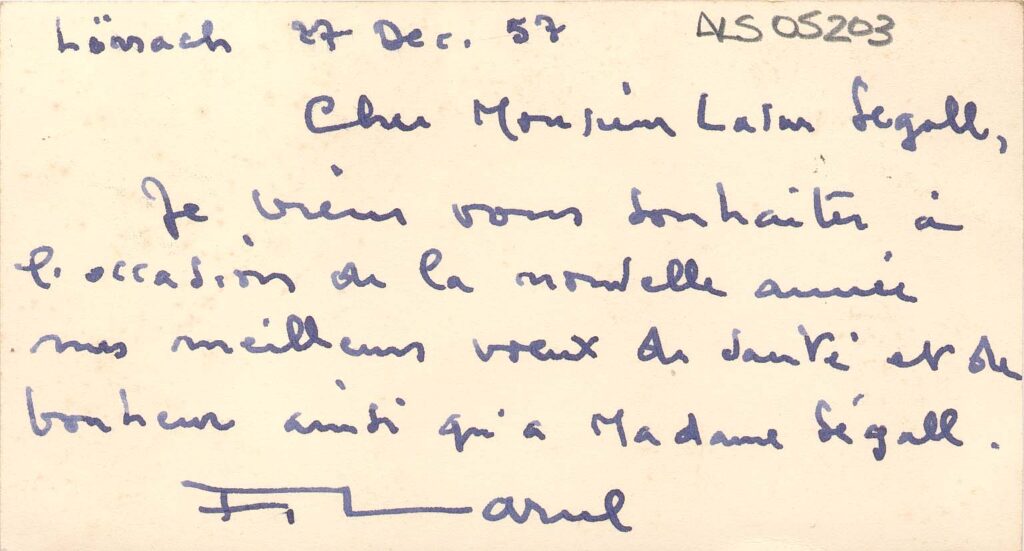 Lörrach 27 Dec. 57
ALS 05203
Cher Monsieur Lasar Ségall,
Je viens vous souhaiter à
l'occasion de la nouvelle année
mes meilleurs voeux de santé et de
bonheur ainsi qu'a Madame Ségall.